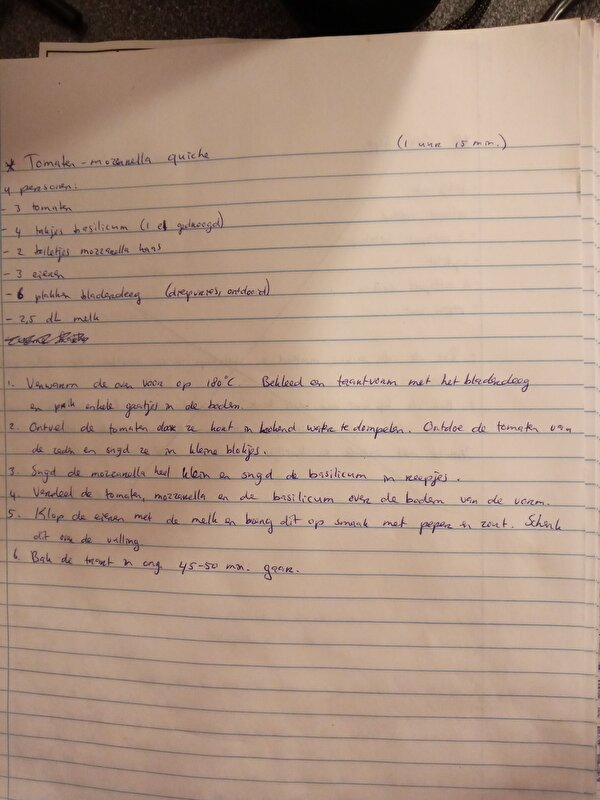 * Tomaten-mozzarella quiche (1 uur 15 min.)
4 personen:
- 3 tomaten
- 4 takjes basilicum (1 el gedroogd)
- 2 bolletjes mozzarella kaas
- 3 eieren
- 6 plakken bladerdeeg (diepvries, ontdooid)
- 2,5 dL melk
1. Verwarm de oven voor op 180°C. Bekleed een taartvorm met het bladerdeeg
en prik enkele gaatjes in de bodem.
2. Ontvel de tomaten door ze kort in kokend water te dompelen. Ontdoe de tomaten van
de zaden en snijd ze in kleine blokjes.
3. Snijd de mozzarella heel klein en snijd de basilicum in reepjes.
4. Verdeel de tomaten, mozzarella en de basilicum over de bodem van de vorm.
5. Klop de eieren met de melk en breng dit op smaak met peper en zout. Schenk
dit over de vulling
6. Bak de taart in ong. 45-50 min. gaar.